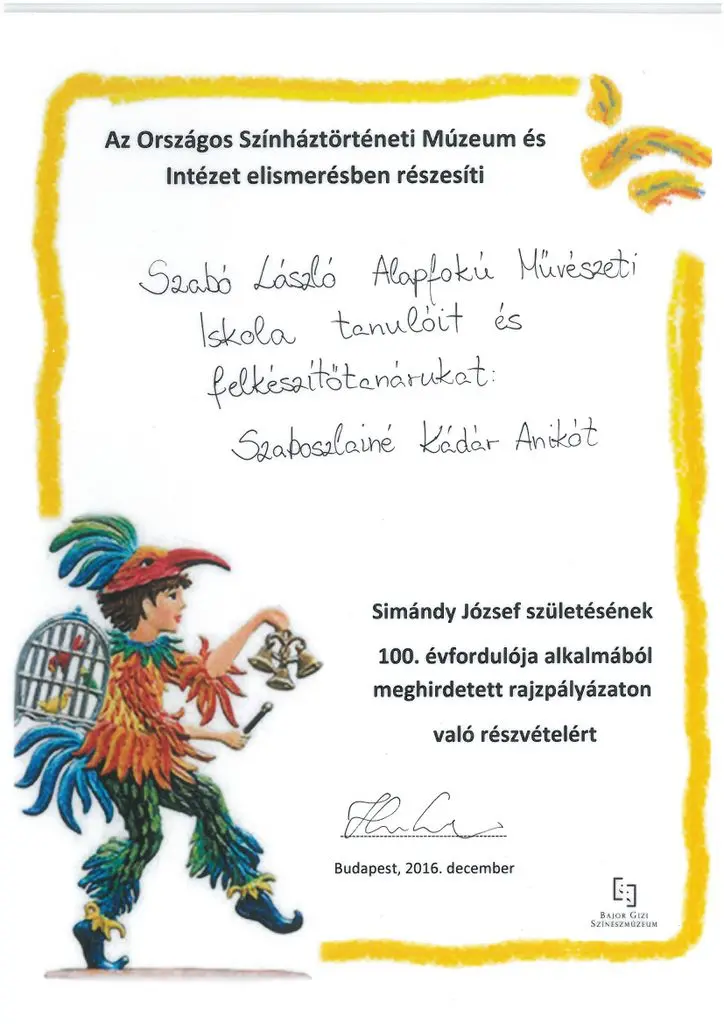 Az Országos Színháztörténeti Múzeum és
Intézet elismerésben részesíti
Szabó László Alapfokú Művészeti
Iskola tanulóit és
felkészítőtanárukat:
Szaboszlainé Kádár Anikót
Simándy József születésének
100. évfordulója alkalmából
meghirdetett rajzpályázaton
való részvételért
Budapest, 2016. december
BAJOR GIZI
SZÍNÉSZMÚZEUM